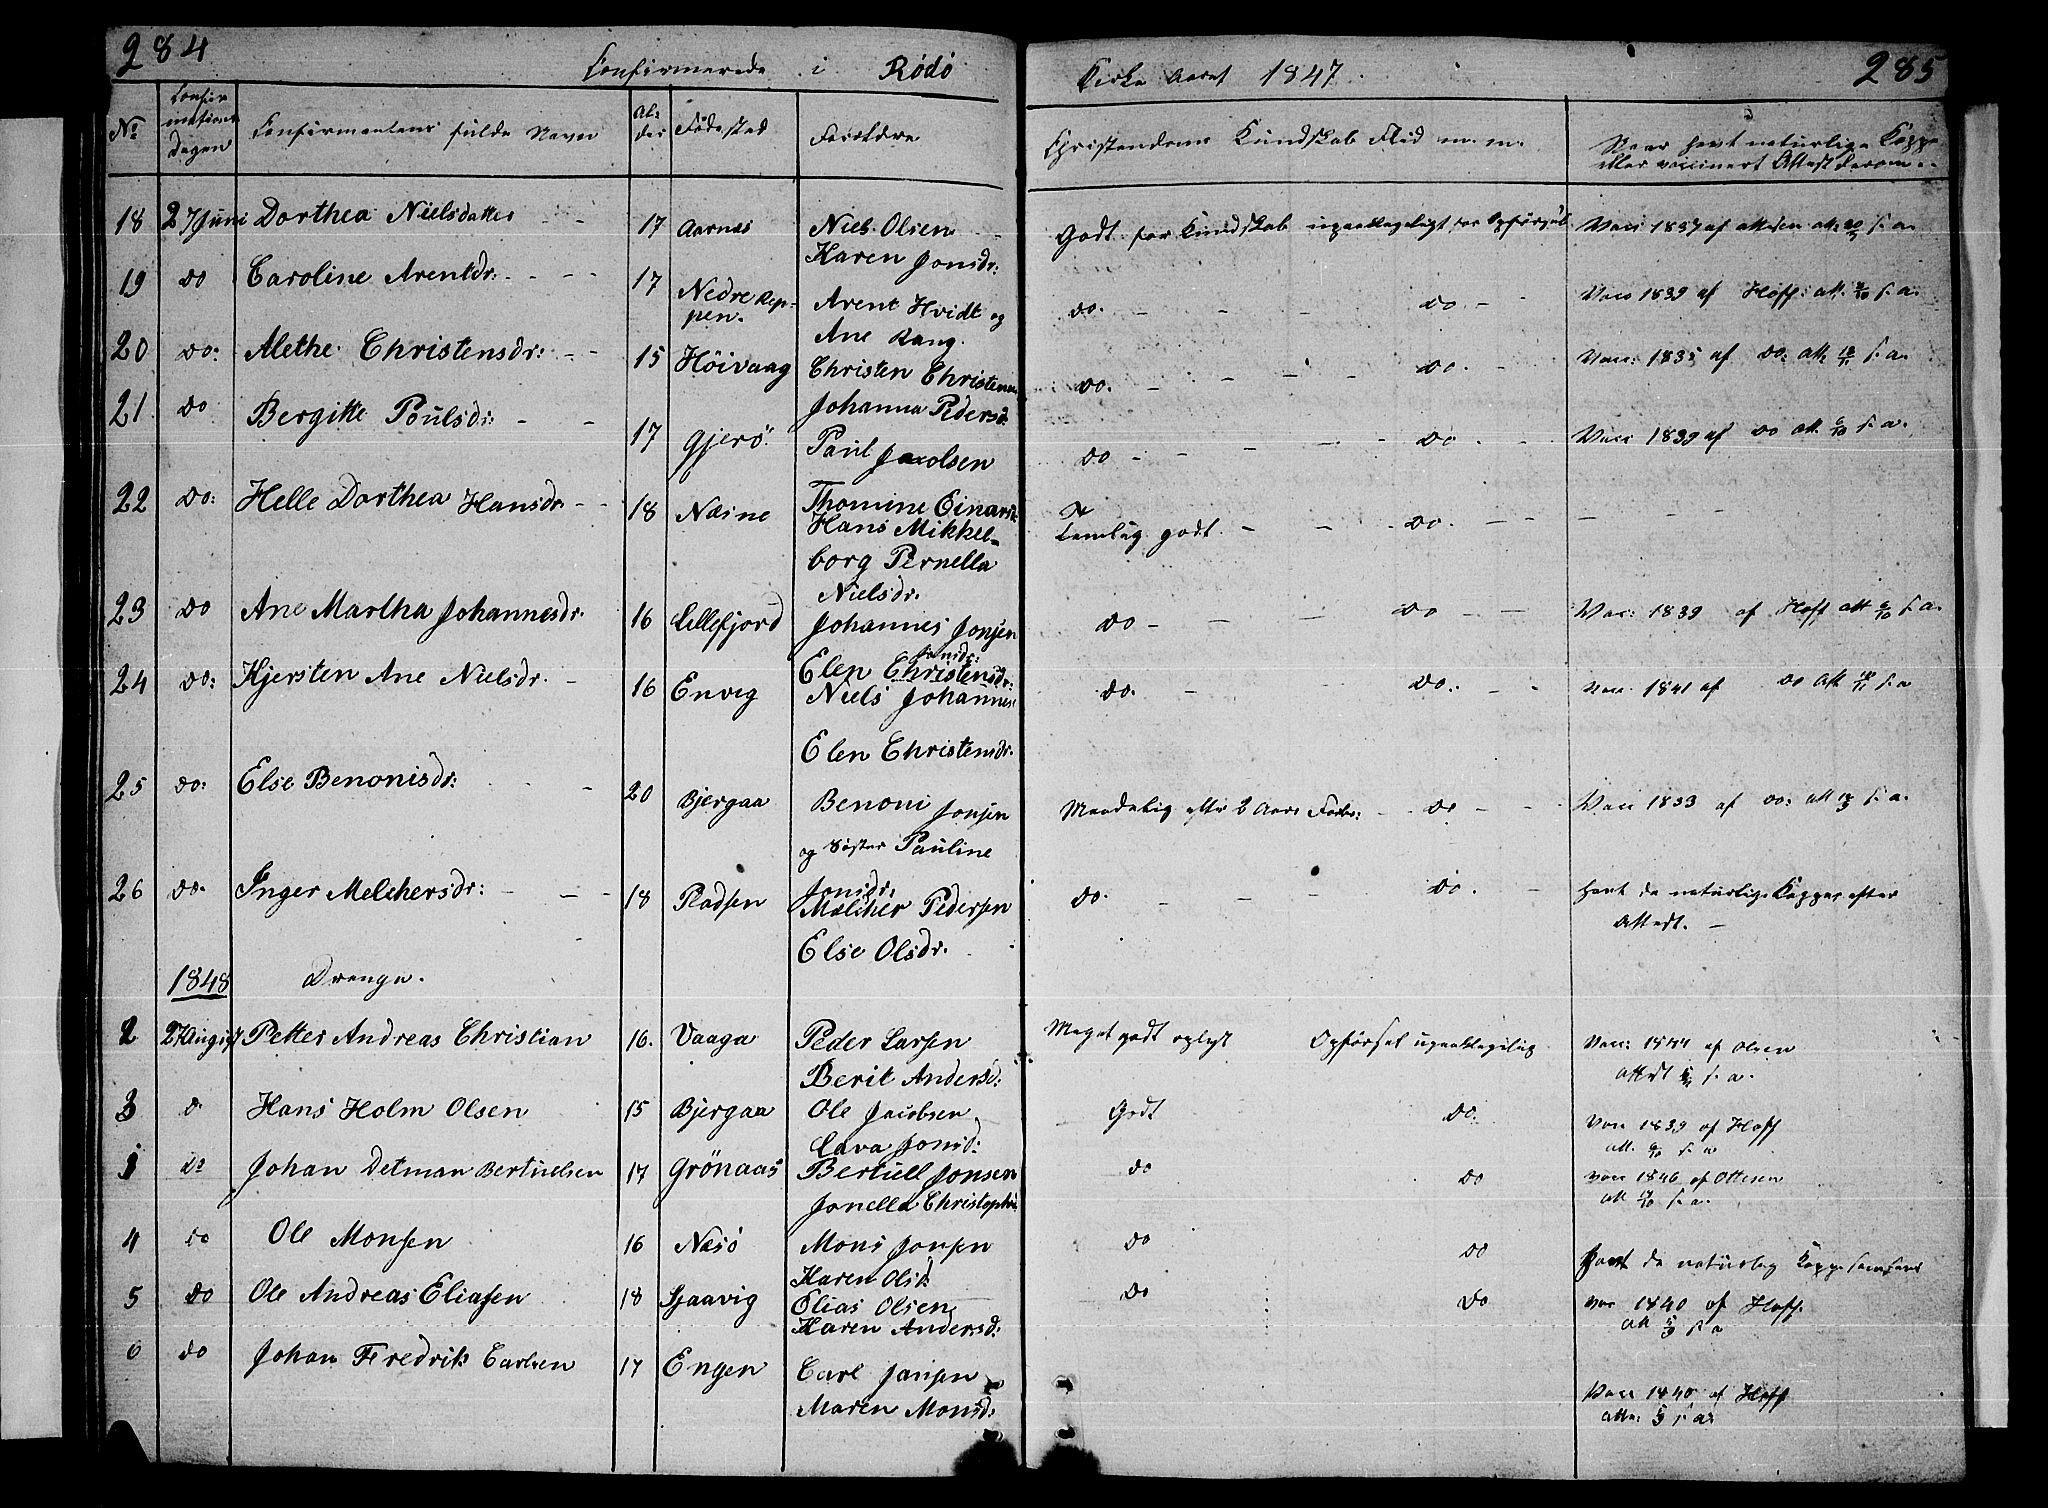 284
Confirmerede i Rödö
Kirke Aaret 1847.
285
No
Confir
mations
Dagen
Confirmantens fulde Navn
Al-
der
Födested
Forældre
Christendoms Kundskab Flid m. m.
Naar havt naturlige Koppe
eller vaccinert Attest derom
18 27 Juni Dorthea Nielsdatter 17 Aarnes Niels Olsen Godt for Kundskab upaaklageligt for Opförsel Vacc 1837 af Ottesen att. 20/5 s. a.
Karen Jonsdr:
19 do Caroline Arentdr: 17 Nedre Rep- Arent Hvidt og do. do Vacc 1839 af Hoff: att. s. a.
pen. Ane Rang.
20 do: Alethe Christensdr: 15 Höivaag Christen Christensen do. do. Vacc: 1835 af do: att. s. a.
Johanna Pedersd:
21. do Bergitte Poulsdr: 17 Gjerö Paul Jacolsen do do Vacc 1839 af do att. 6/10 s. a.
22 do: Helle Dorthea Hansdr 18 Næsne Thomine Einarsd: Temlig godt do.
Hans Mikkel-
borg Pernella
Nielsdr:
23 do Ane Martha Johannesdr: 16 Lillefjord Johannes Jonsen do do Vac: 1839 af Hoff att 6/10 s. a.
Jonsdr:
Elen Christensdr:
24 do: Kjersten Ane Nielsdr. 16 Enveg Niels Johannes: do. do. Vacc. 1841 af do att s. a
Elen Christensdr.
25 do: Else Benonisdr: 20 Bjergaa Benoni Jonsen Maadelig efter 2 Aars do Vacc 1833 af do: att s. a.
og Söster Pauline
Jonsdr,
26 do. Inger Melchersdr: 18 Pladsen Melcher Pedersen do. do. havt de naturlige Kopper efter
Else Olsdr. Attest.
1848 Drenge.
2 27 August Petter Andreas Christian 16. Vaaga Peder Larsen Meget godt oplyst Opförsel upaaklagelig Vacc: 1844 af Olsen
Berit Andersd: attest s. a.
3 d. Hans Holm Olsen 15 Bjergaa Ole Jacobsen Godt do. Vacc 1839 af Hoff
Lava Jonsd: att. s. a
1 do Johan Detman Bertuelsen 17 Grönaas Bertuell Jonsen do do vacc 1846 af Ottesen
Jonella Christophs: att s. a.
4 do Ole Monsen 16 Næsö Mons Jonsen do do havt de naturlig Koppe
Karen Olsd:
5 do Ole Andreas Eliasen 18 Sjaavig Elias Olsen do do vac 1840 af Hoff.
Karen Andersd: att s a
6 do Johan Fredrik Carlsen 17 Engen Carl Jansen Vacc 1840 af Hoff
Maren Monsd: atte: s. a.